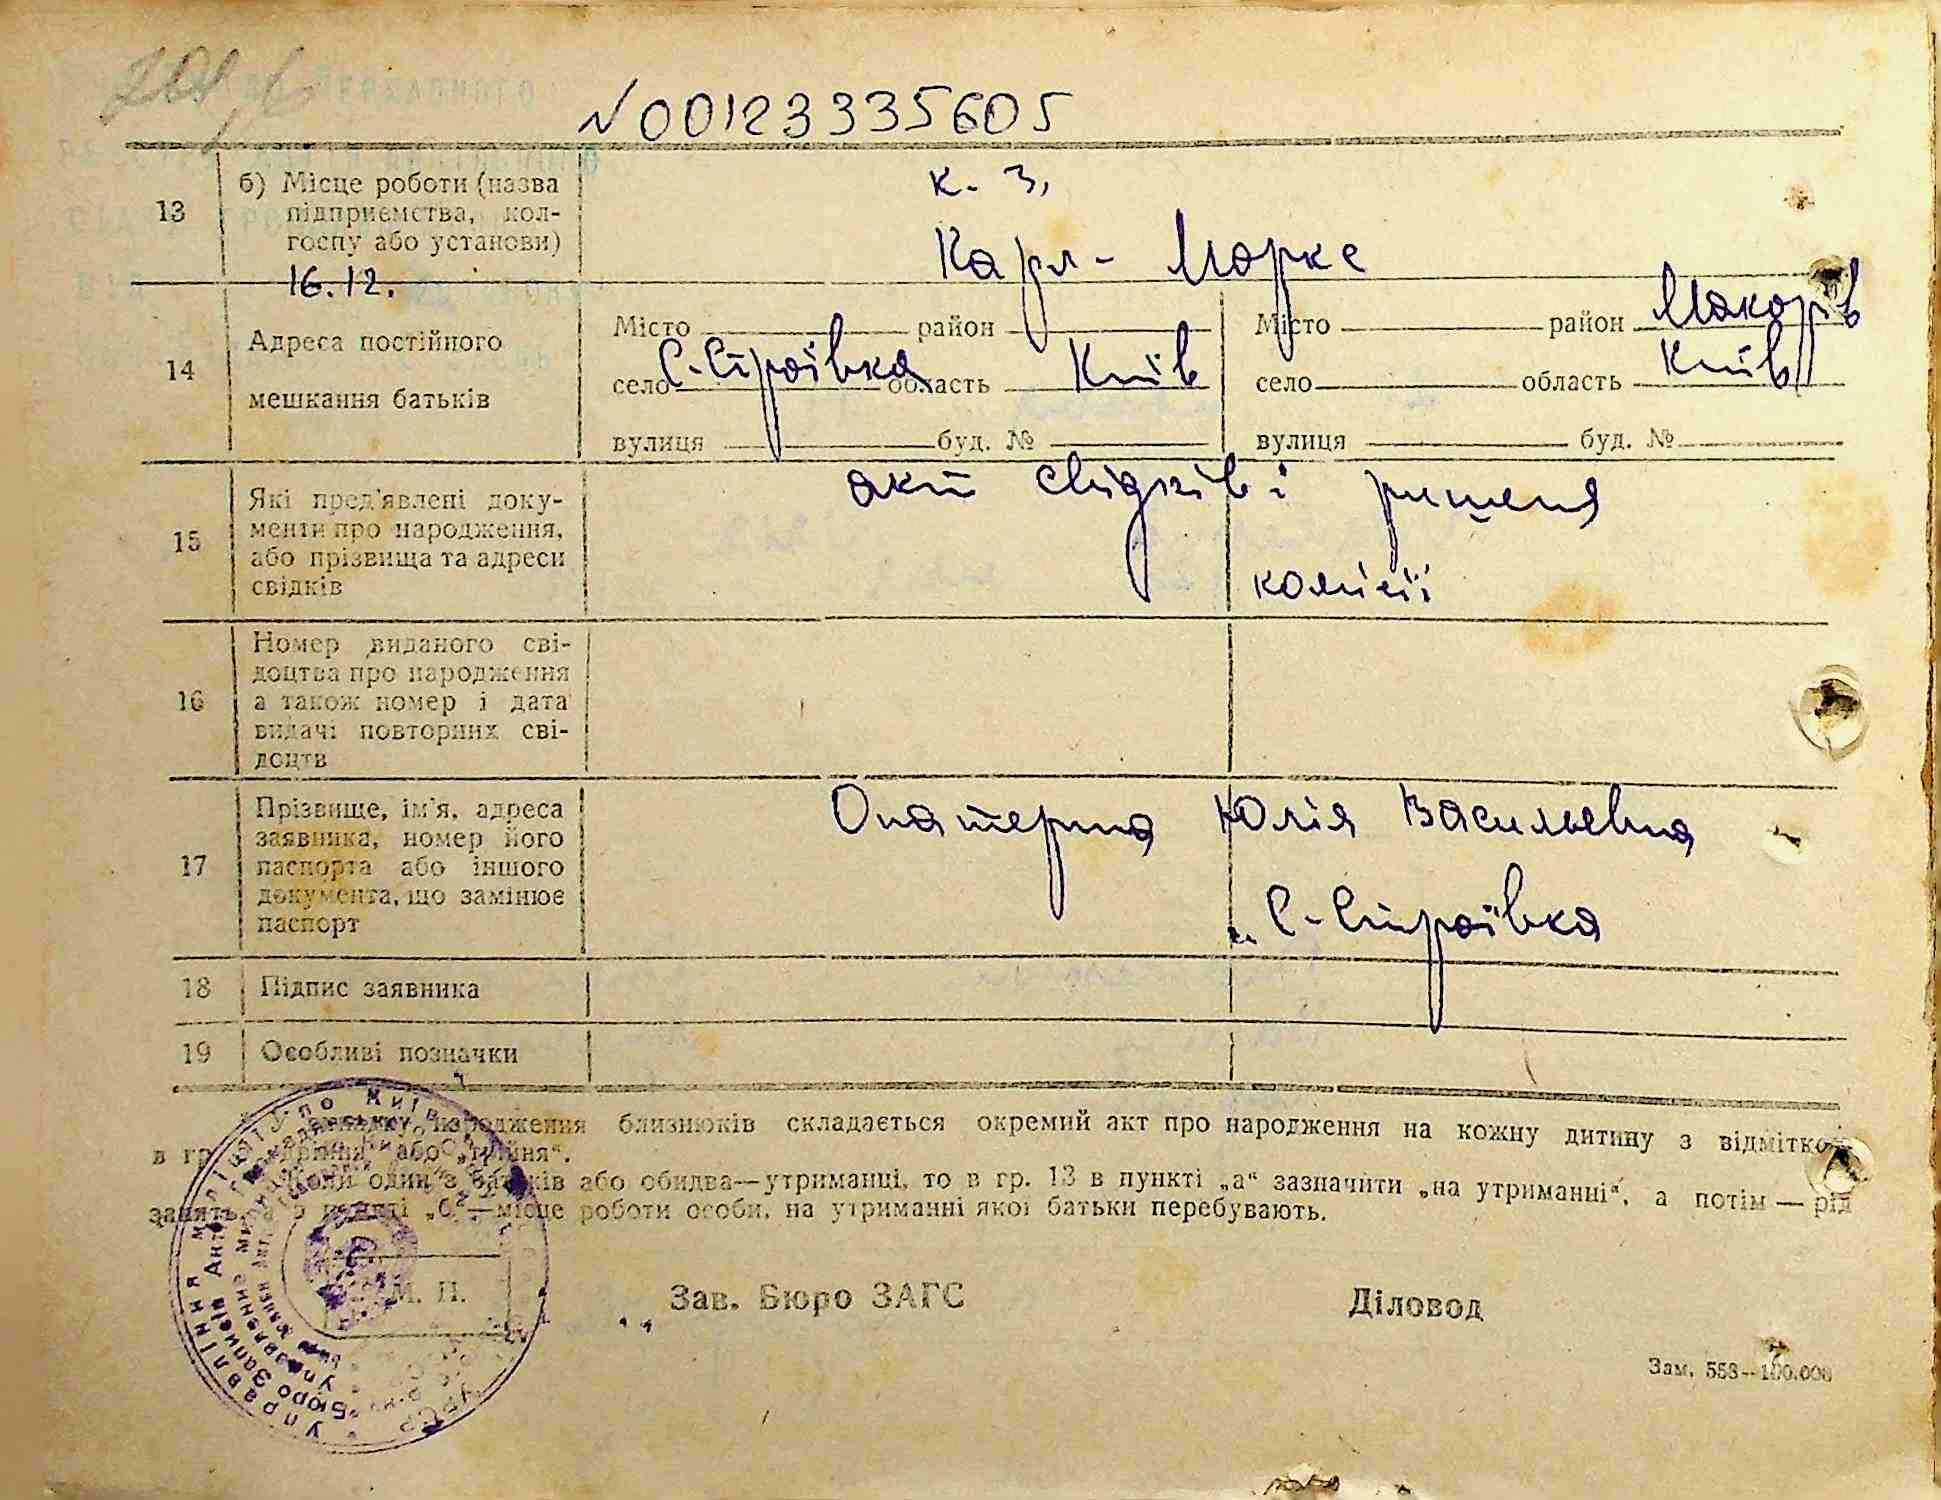 N00123335605
13 б) Місце роботи (назва підприємства, кол-
госпу або установи)
к. з.
Карл-Маркс
16.12.
14 Адреса постійного
мешкання батьків
Місто район Місто район Макарів
село С-Строївка область Київ село область Київ
вулиця буд. № вулиця буд. №
15 Які пред'явлені доку-
менти про народження,
або прізвища та адреси
свідків
акт свідків і ришеня
комісії
16 Номер виданого сві-
доцтва про народження
а також номер і дата
видачі повторних сві-
доцтв
17 Прізвище, ім'я, адреса
заявника, номер його
паспорта або іншого
документа, що замінює
паспорт
Опатерина Юлія Васильевна
С-Строївка
18 Підпис заявника
19 Особливі позначки
У випадку народження близнюків складається окремий акт про народження на кожну дитину з відміткою
в гр. або „трійня“.
Коли один з батьків або обидва—утриманці, то в гр. 13 в пункті „а“ зазначити „на утриманні“, а потім — рід
занять, а в пункті „б“—місце роботи особи, на утриманні якої батьки перебувають.
М. П.
Зав. Бюро ЗАГС Діловод
Зам. 553—100.000